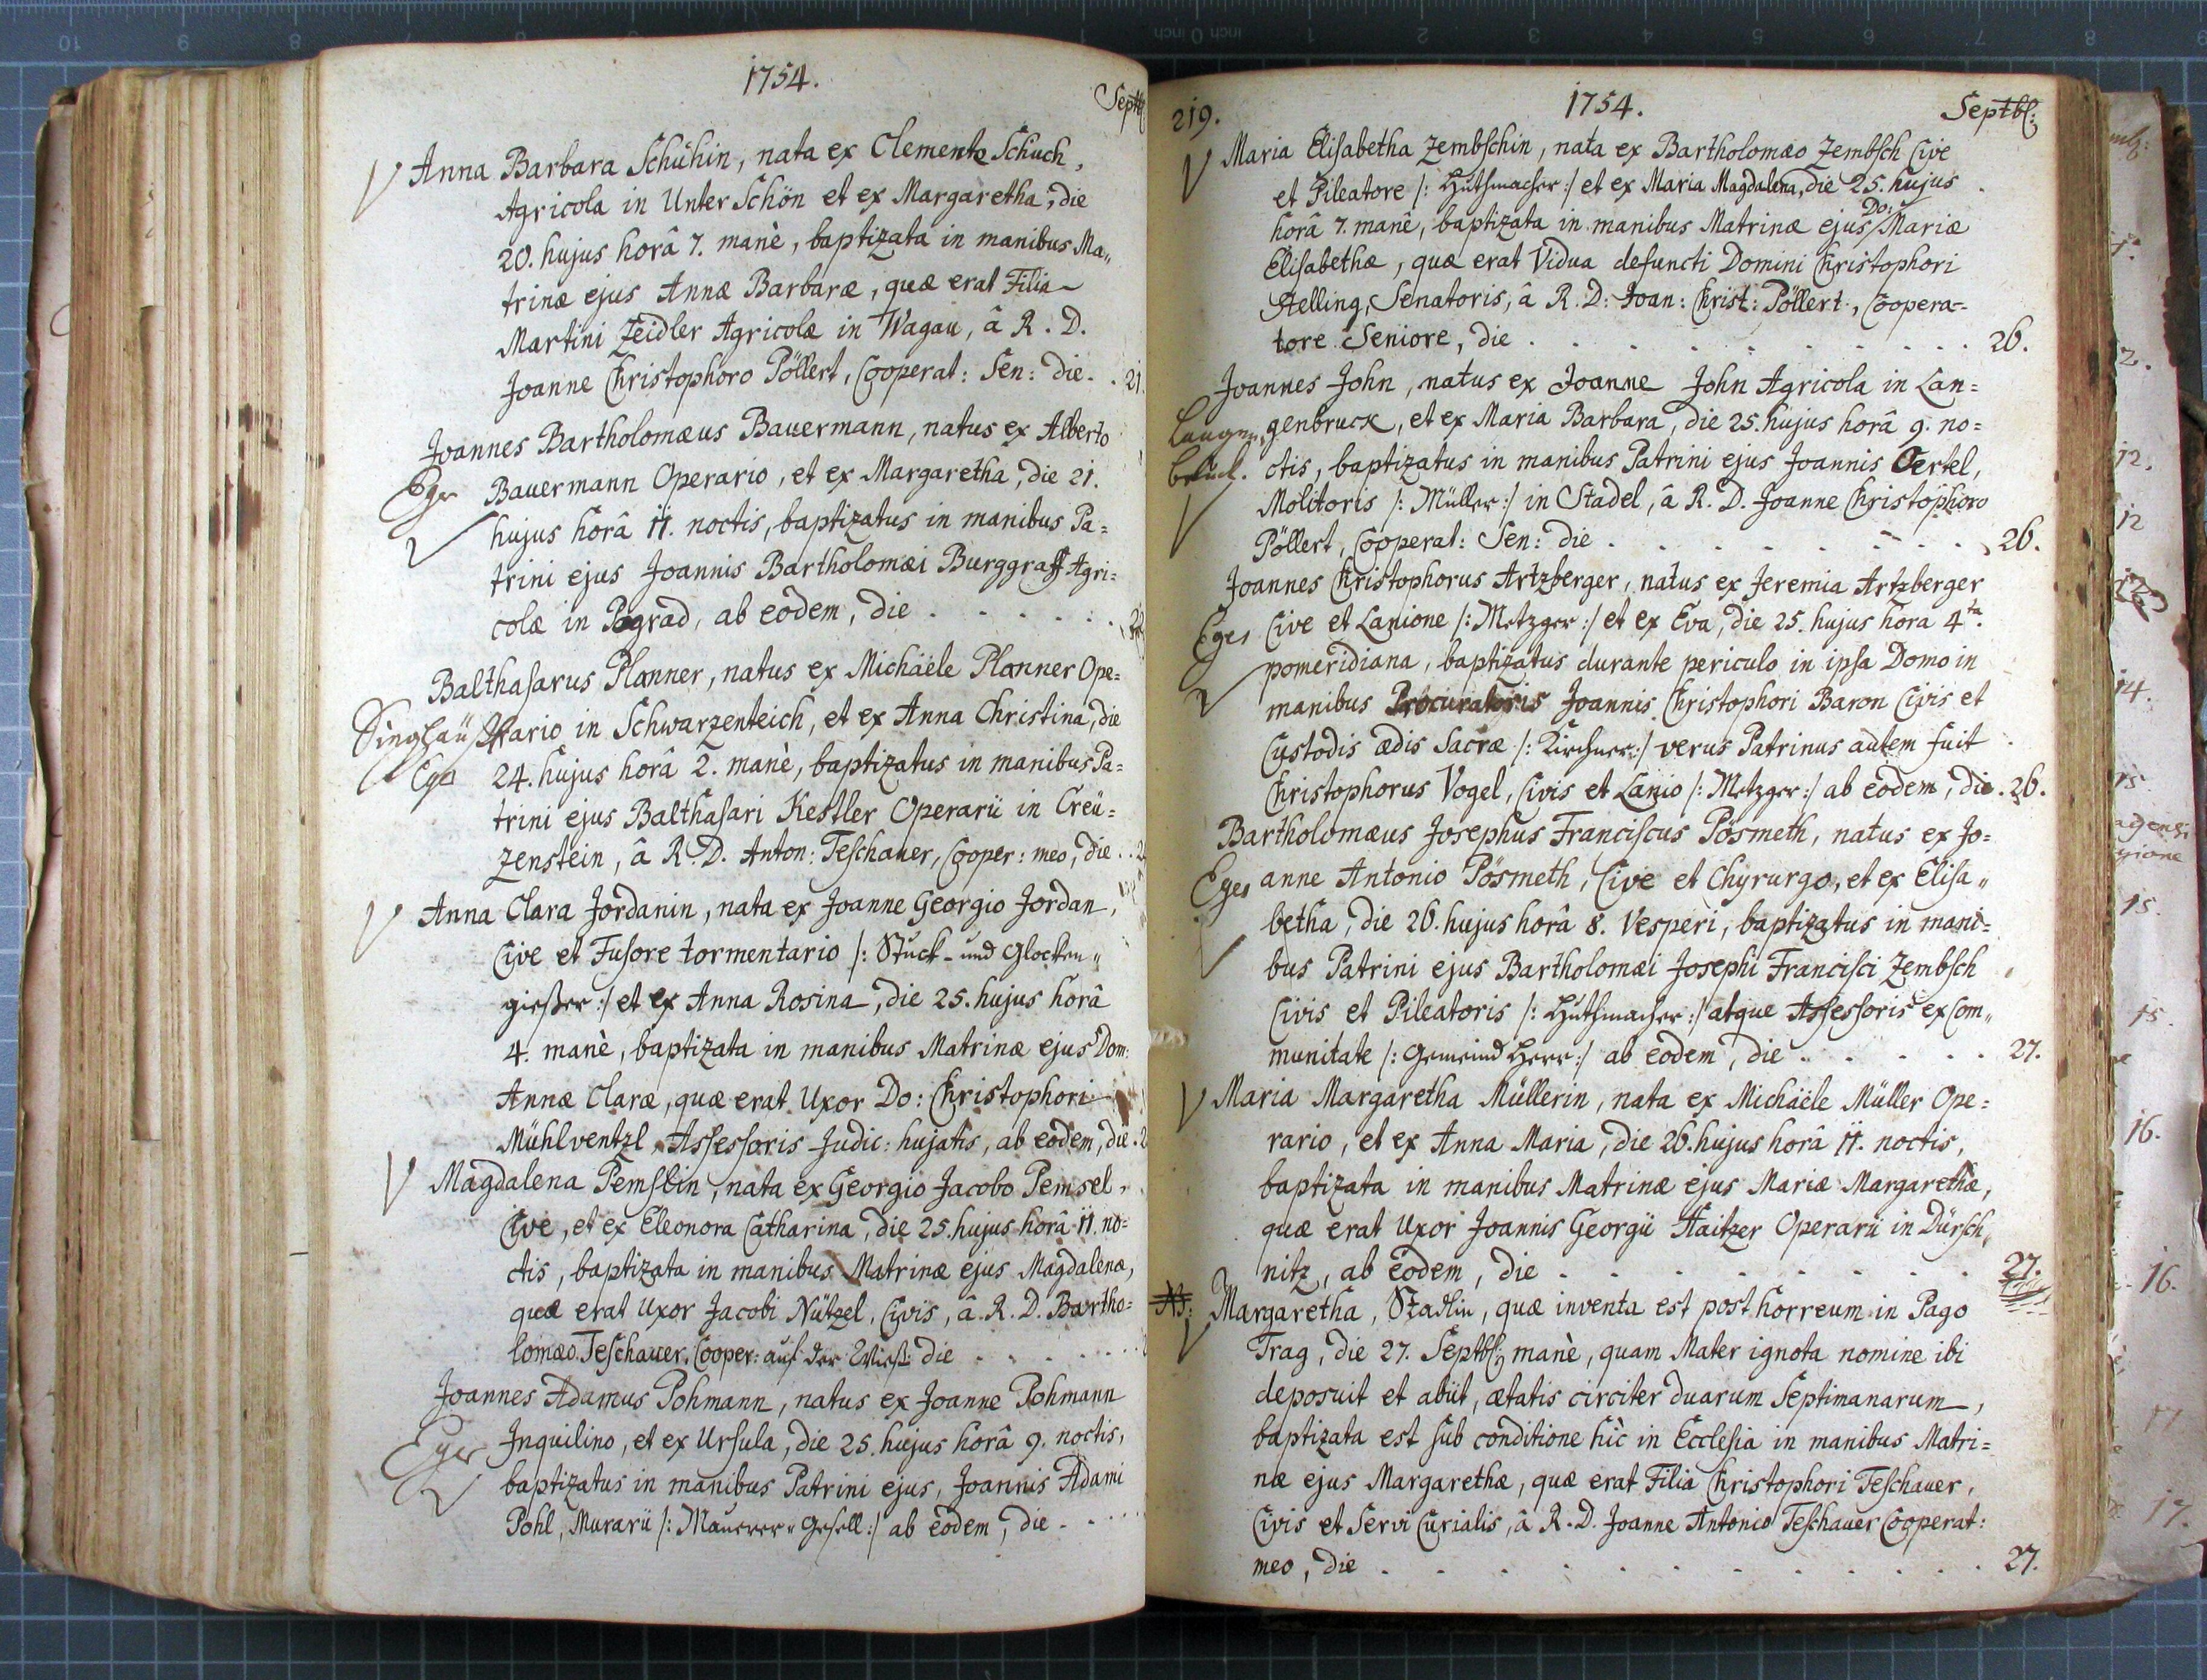 1754.
Septb
Anna Barbara Schuhin, nata ex Clemente Schuch,
Agricola in Unter Schön et ex Margaretha, die
20. hujus horâ 7. manè, baptizata in manibus Ma„
trinæ ejus Annæ Barbaræ, quæ erat Filia
Martini Zeidler Agricolæ in Wagau, â R. D.
Joanne Christophoro Pöllert, Cooperat: Sen: die . . 21.
Joannes Bartholomæus Bauermann, natus ex Alberto
Eger Bauermann Operario, et ex Margaretha, die 21.
hujus horâ 11. noctis, baptizatus in manibus Pa=
trini ejus Joannis Bartholomæi Burggraff Agri=
colæ in Pograd, ab eodem, die . . . . . . 22
Balthasarus Planner, natus ex Michaële Planner Ope=
rario in Schwarzenteich, et ex Anna Christina, die
Eger 24. hujus horâ 2. manè, baptizatus in manibus Pa=
trini ejus Balthasari Kestler Operarii in Creü=
zenstein, â R. D. Anton: Teschauer, Cooper: meo, die . . 2
Anna Clara Jordanin, nata ex Joanne Georgio Jordan,
Cive et Fusore tormentario /: Stuck- und Glocken„
gießer :/ et ex Anna Rosina, die 25. hujus horâ
4. manè, baptizata in manibus Matrinæ ejus Dom:
Annæ Claræ, quæ erat Uxor Do: Christophori
Mühlventzl, Assessoris Judic: hujatis, ab eodem, die . 2
Magdalena Pemslin, nata ex Georgio Jacobo Pemsel,
Cive, et ex Eleonora Catharina, die 25. hujus horâ 11. no=
ctis, baptizata in manibus Matrinæ ejus Magdalenæ,
quæ erat Uxor Jacobi Nützel, Civis, â R. D. Bartho=
lomæo Teschauer, Cooper: auf der Wieß: die . . . . .
Joannes Adamus Pohmann, natus ex Joanne Pohmann
Eger Inquilino, et ex Ursula, die 25. hujus horâ 9. noctis,
baptizatus in manibus Patrini ejus, Joannis Adami
Pohl, Murarii /: Maurer„Gesell :/ ab eodem, die . . .
219.
1754.
Septbr:
Maria Elisabetha Zembschin, nata ex Bartholomæo Zembsch Cive
et Pileatore /: Huthmacher :/ et ex Maria Magdalena, die 25. hujus
horâ 7. manè, baptizata in manibus Matrinæ ejus Do: Mariæ
Elisabethæ, quæ erat Vidua defuncti Domini Christophori
Stelling, Senatoris, â R. D: Joan: Christ: Pöllert, Coopera=
tore Seniore, die . . . . . . . . 26.
Joannes John, natus ex Joanne John Agricola in Lan=
Langen„ genbruck, et ex Maria Barbara, die 25. hujus horâ 9. no=
bruck. ctis, baptizatus in manibus Patrini ejus Joannis Oertel,
Molitoris /: Müller :/ in Stadel, â R. D. Joanne Christophoro
Pöllert, Cooperat: Sen: die . . . . . . . . 26.
Joannes Christophorus Artzberger, natus ex Jeremia Artzberger
Eger Cive et Lanione /: Metzger :/ et ex Eva, die 25. hujus hora 4ta.
pomeridiana, baptizatus durante periculo in ipsa Domo in
manibus Procuratoris Joannis Christophori Baron Civis et
Custodis ædis Sacræ /: Kirchner :/ verus Patrinus autem fuit
Christophorus Vogel, Civis et Lanio /: Metzger :/ ab eodem, die . 26.
Bartholomæus Josephus Franciscus Pösmeth, natus ex Jo=
Eger anne Antonio Pösmeth, Cive et Chyrurgo, et ex Elisa„
betha, die 26. hujus horâ 8. Vesperi, baptizatus in mani=
bus Patrini ejus Bartholomæi Josephi Francisci Zembsch
Civis et Pileatoris /: Huthmacher :/ atque Assessoris ex Com„
munitate /: Gemeind Herr :/ ab eodem, die . . . . . 27.
Maria Margaretha Müllerin, nata ex Michaële Müller Ope=
rario, et ex Anna Maria, die 26. hujus horâ 11. noctis,
baptizata in manibus Matrinæ ejus Mariæ Margarethæ,
quæ erat Uxor Joannis Georgii Haitzer Operarii in Dürsch„
nitz, ab eodem, die . . . . . . . . 27.
NB: Margaretha, Stadlin, quæ inventa est post horreum in Pago
Trag, die 27. Septbr: manè, quam Mater ignota nomine ibi
deposuit et abiit, ætatis circiter duarum Septimanarum,
baptizata est sub conditione hìc in Ecclesia in manibus Matri=
næ ejus Margarethæ, quæ erat Filia Christophori Teschauer,
Civis et Servi Curialis, â R. D. Joanne Antonio Teschauer Cooperat:
meo, die . . . . . . . . . . 27.